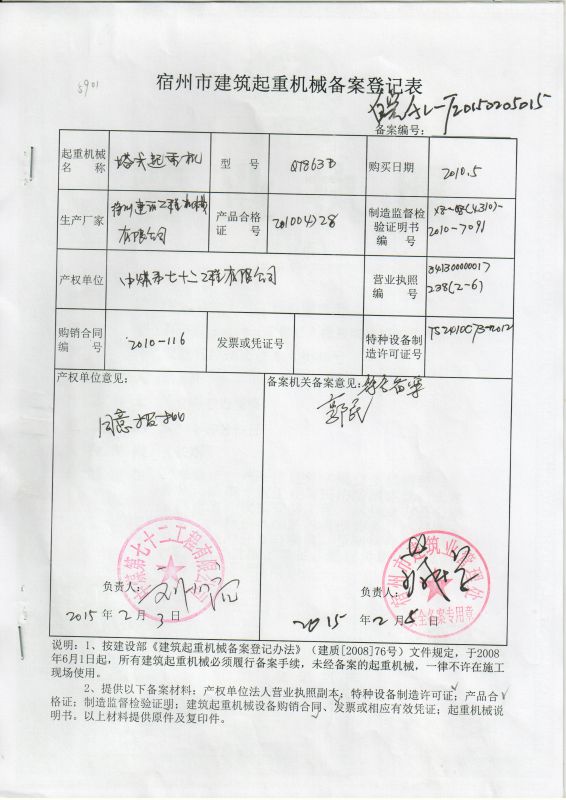 5901
宿州市建筑起重机械备案登记表
皖AL-T20150205015
备案编号：
起重机械名　称 塔式起重机 型　号 QTZ63B 购买日期 2010.5
生产厂家 徐州建工程机械有限公司 产品合格证　号 201004728 制造监督检验证明书编　号 2010-7091
产权单位 中煤第七十二工程有限公司 营业执照编　号 341300000017
238(2-6)
购销合同编　号 2010-116 发票或凭证号 特种设备制造许可证号
产权单位意见： 备案机关备案意见：
同意
中煤第七十二工程有限公司
宿州市建筑业管理处
安全备案专用章
负责人： 负责人：
2015 年 2 月 3 日 2015 年 2 月 5 日
说明：1、按建设部《建筑起重机械备案登记办法》（建质[2008]76号）文件规定，于2008
年6月1日起，所有建筑起重机械必须履行备案手续，未经备案的起重机械，一律不许在施工
现场使用。
2、提供以下备案材料：产权单位法人营业执照副本；特种设备制造许可证；产品合
格证；制造监督检验证明；建筑起重机械设备购销合同、发票或相应有效凭证；起重机械说
明书。以上材料提供原件及复印件。